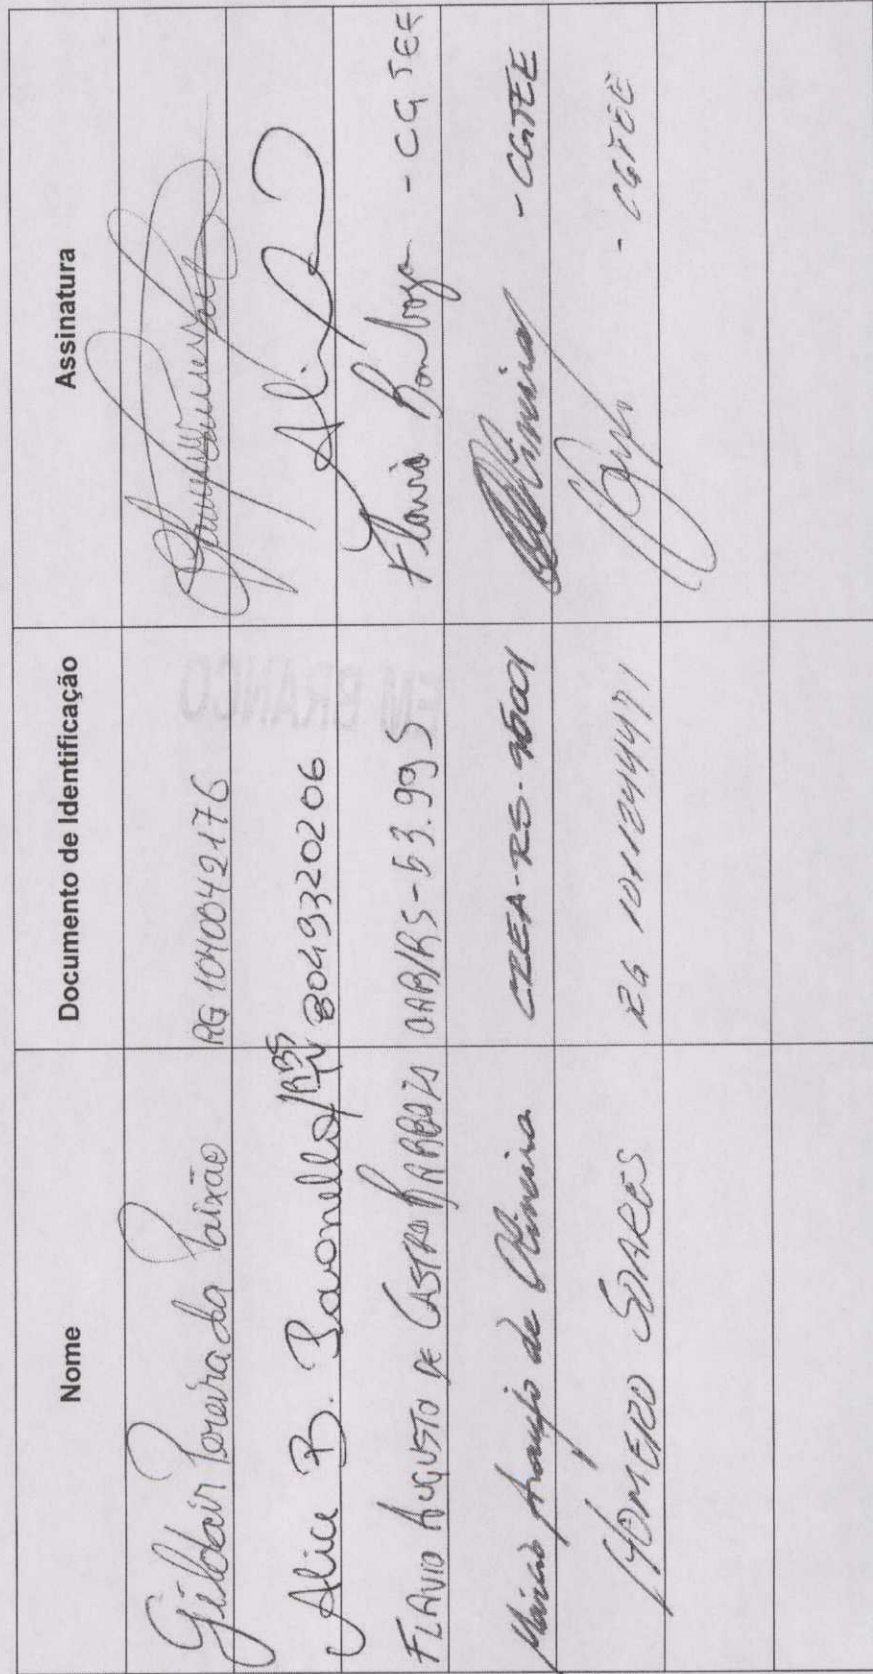 Nome Documento de Identificação Assinatura
Gildair Pereira da Paixão RG 1040042176
Alice B. Pavonello/RBS TV 8049320206 Alice
FLAVIO AUGUSTO DE CASTRO BARBOZA OAB/RS-53.995 Flavio Barboza - CGTEE
Marcio Araujo de Oliveira CREA-RS- Oliveira - CGTEE
HOMERO SOARES RG 1011244471 - CGTEE
EM BRANCO